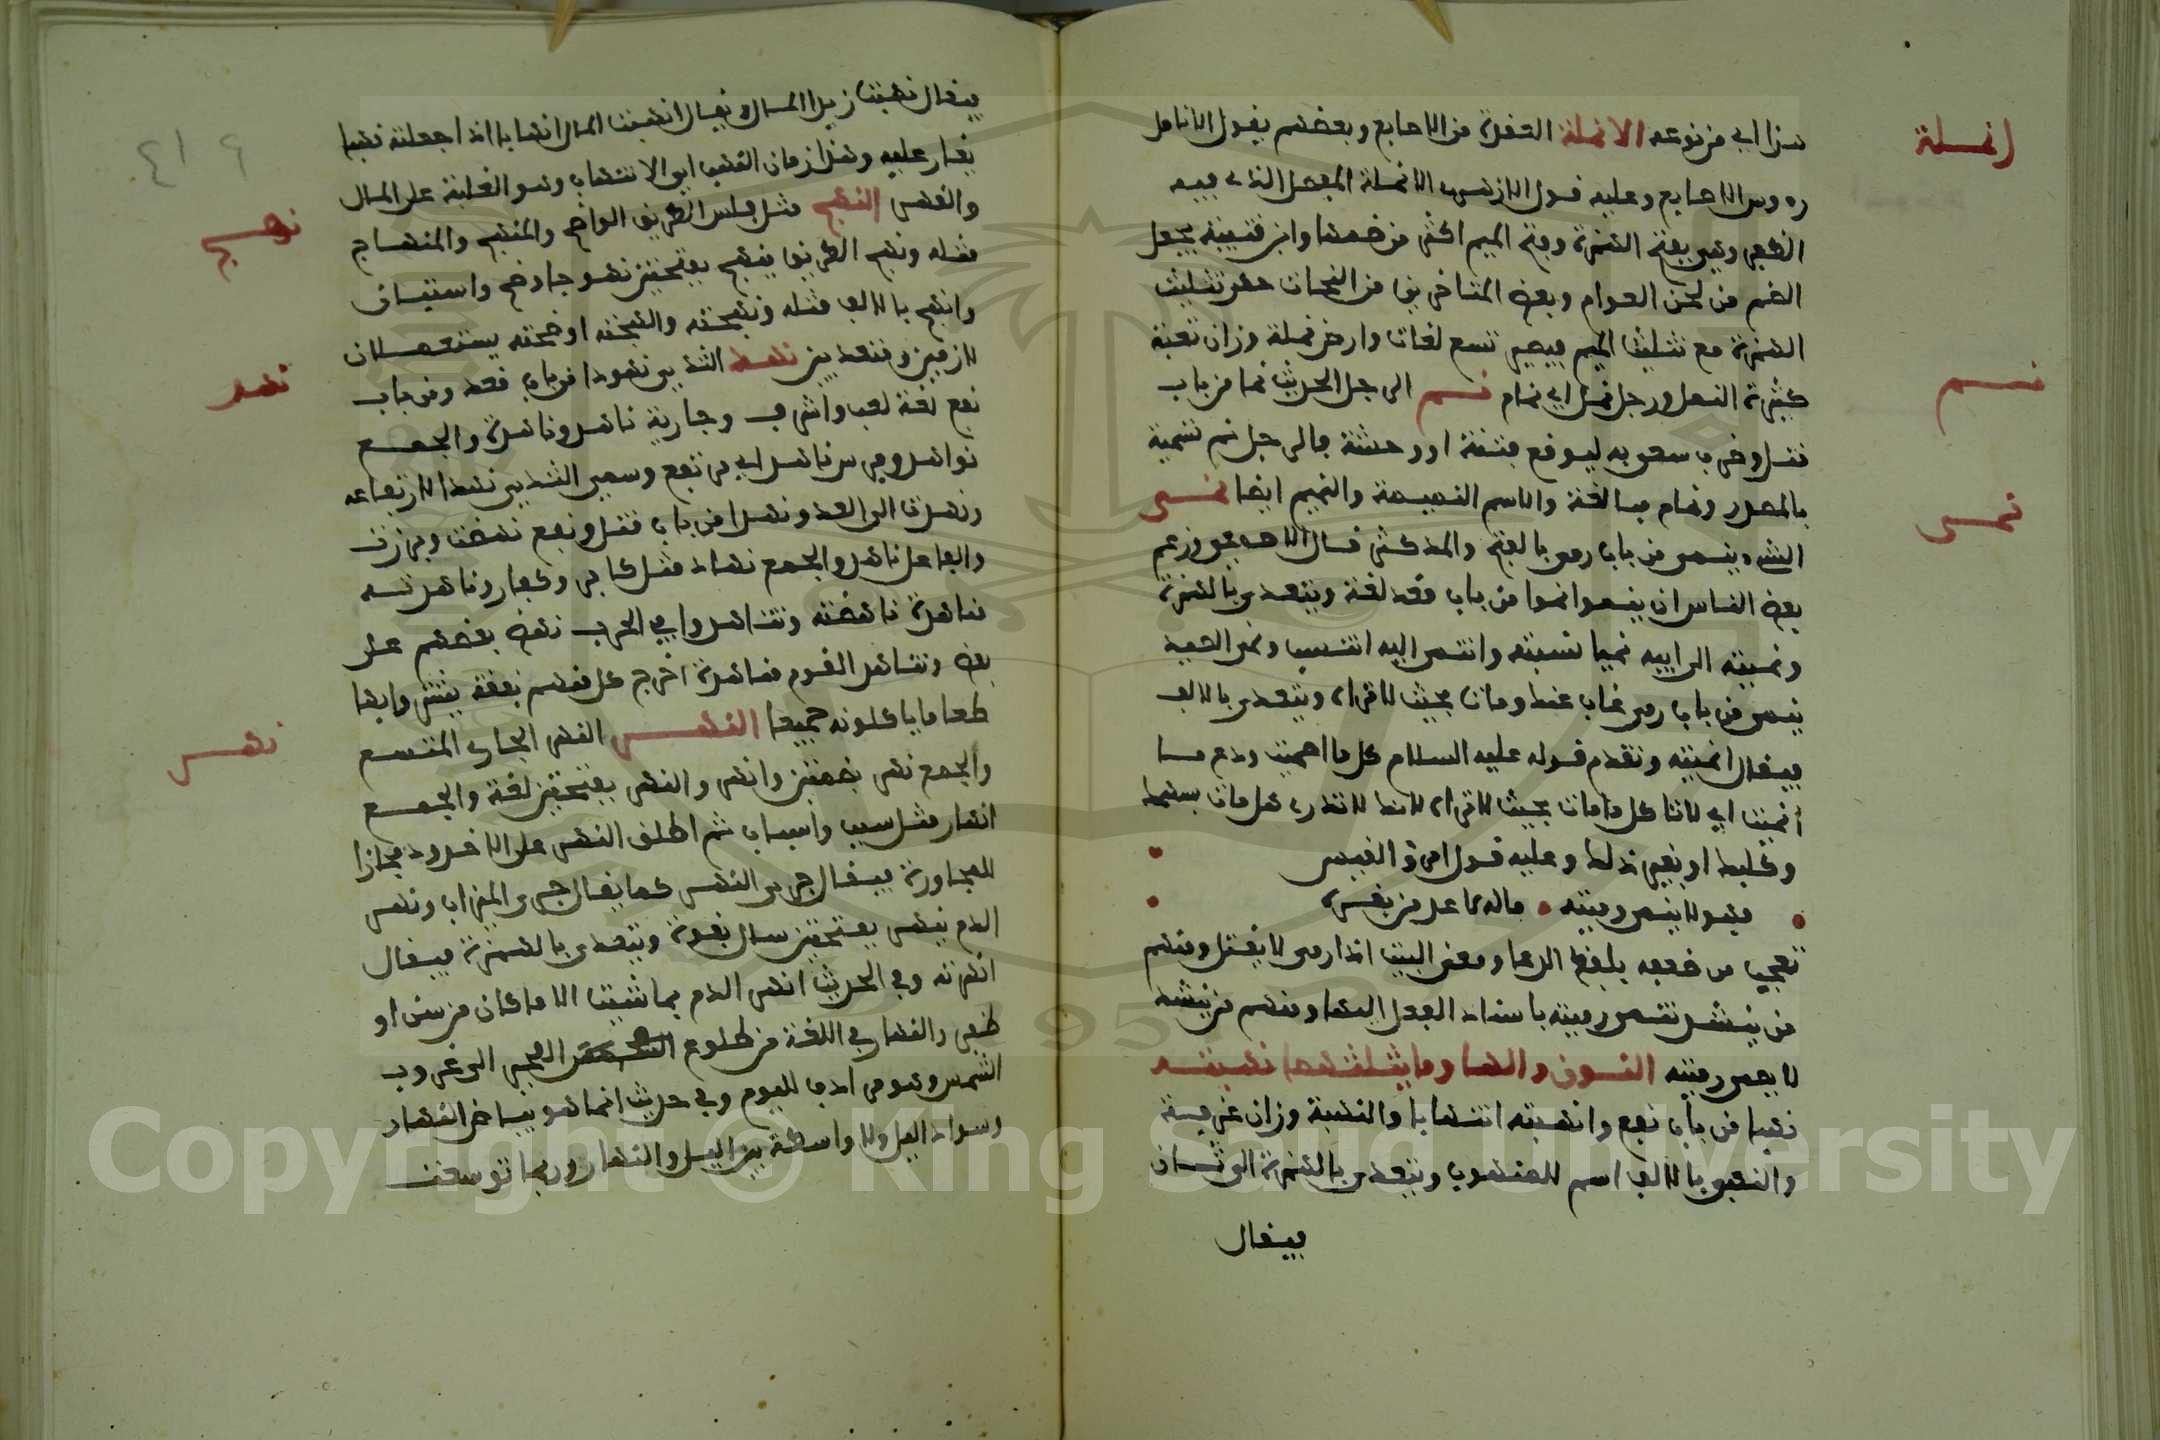 انملة
هذا اي من نوعه الانملة العقدة من الاصابع وبعضهم يقول الانامل
رءوس الاصابع وعليه قول الازهري الانملة المفصل الذي فيه
الظفر وهي بفتح الهمزة وفتح الميم اكثر من ضمها وابن قتيبة يجعل
الضم من لحن العوام وبعض المتاخرين من النحاة حكى تثليث
الهمزة مع تثليث الميم فيصير تسع لغات وارض نملة وزان تعبة
كثيرة النمل ورجل نمل اي نمام نم الرجل الحديث نما من باب
نم
قتل وضرب سعى به ليوقع فتنة او وحشة فالرجل نم تسمية
بالمصدر ونمام مبالغة والاسم النميمة والنميم ايضا نمى
نمى
الشيء ينمى من باب رمى بالفتح والمد كثر قال الاصمعي وزعم
بعض الناس ان ينمو انموا من باب قعد لغة ويتعدى بالهمزة
ونميته الى ابيه نميا نسبته وانتمى اليه انتسب ونمى الصيد
ينمى من باب رمى غاب عنك ومات بحيث لا تراه ويتعدى بالالف
فيقال انميته وتقدم قوله عليه السلام كل ما اصميت ودع ما
أنميت اي لا تاكل ما مات بحيث لا تراه لانك لا تدري هل مات بسهمك
وكلبك او بغير ذلك وعليه قول امرؤ القيس
فهو لا ينمى رميته • ماله لا عد من نفره
تعجب من ضعفه بلفظ الدعا ومعنى البيت اذا رمى لا يقتل ومنهم
من ينشد تنمى رميته باسناد الفعل اليها ومنهم من ينشد
لا يصمى رميته النون والها وما يثلثهما نهبته
نهبا من باب نفع وانتهبته انتهابا والنهبة وزان غرفة
والنهبى بالالف اسم للمنهوب ويتعدى بالهمزة الى ثان
فيقال
٤١٩
فيقال نهبت زيدا المال ويقال انهبت المال انهابا اذا جعلته نهبا
يغار عليه وهذا زمان النهب اي الانتهاب وهو الغلبة على المال
والقهر النهج مثل فلس الطريق الواضح والمنهج والمنهاج
نهج
مثله ونهج الطريق ينهج بفتحتين نهوجا وضح واستبان
وانهج بالالف مثله ونهجته وانهجته اوضحته يستعملان
لازمين ومتعديين نهد الثدي نهودا من باب قعد ومن باب
نهد
نفع لغة كعب واشرف وجارية ناهد وناهدة والجمع
نواهد وفرس ناهد اي مرتفع وسمي الثدي نهدا لارتفاعه
ونهدت الى العدو نهدا من باب قتل ونفع نهضت وبرزت
والفاعل ناهد والجمع نهاد مثل كافر وكفار وناهدته
مناهدة ناهضته وتناهدوا في الحرب نهض بعضهم على
بعض وتناهد القوم مناهدة اخرج كل منهم نفقة يشتروا بها
طعاما ياكلونه جميعا النهر النهر الجاري المتسع
نهر
والجمع نهر بضمتين وانهر والنهر بفتحتين لغة والجمع
انهار مثل سبب واسباب ثم اطلق النهر على الاخدود مجازا
للمجاورة فيقال جرى النهر كما يقال جرى الميزاب ونهر
الدم ينهر بفتحتين سال بقوة ويتعدى بالهمزة فيقال
انهرته وفي الحديث انهر الدم بما شيت الا ما كان من سن او
ظفر والنهار في اللغة من طلوع الفجر الى غروب
الشمس وهو مرادف لليوم وفي حديث انما هو بياض النهار
وسواد الليل ولا واسطة بين الليل والنهار وربما توسعت
Copyright © King Saud University
1957